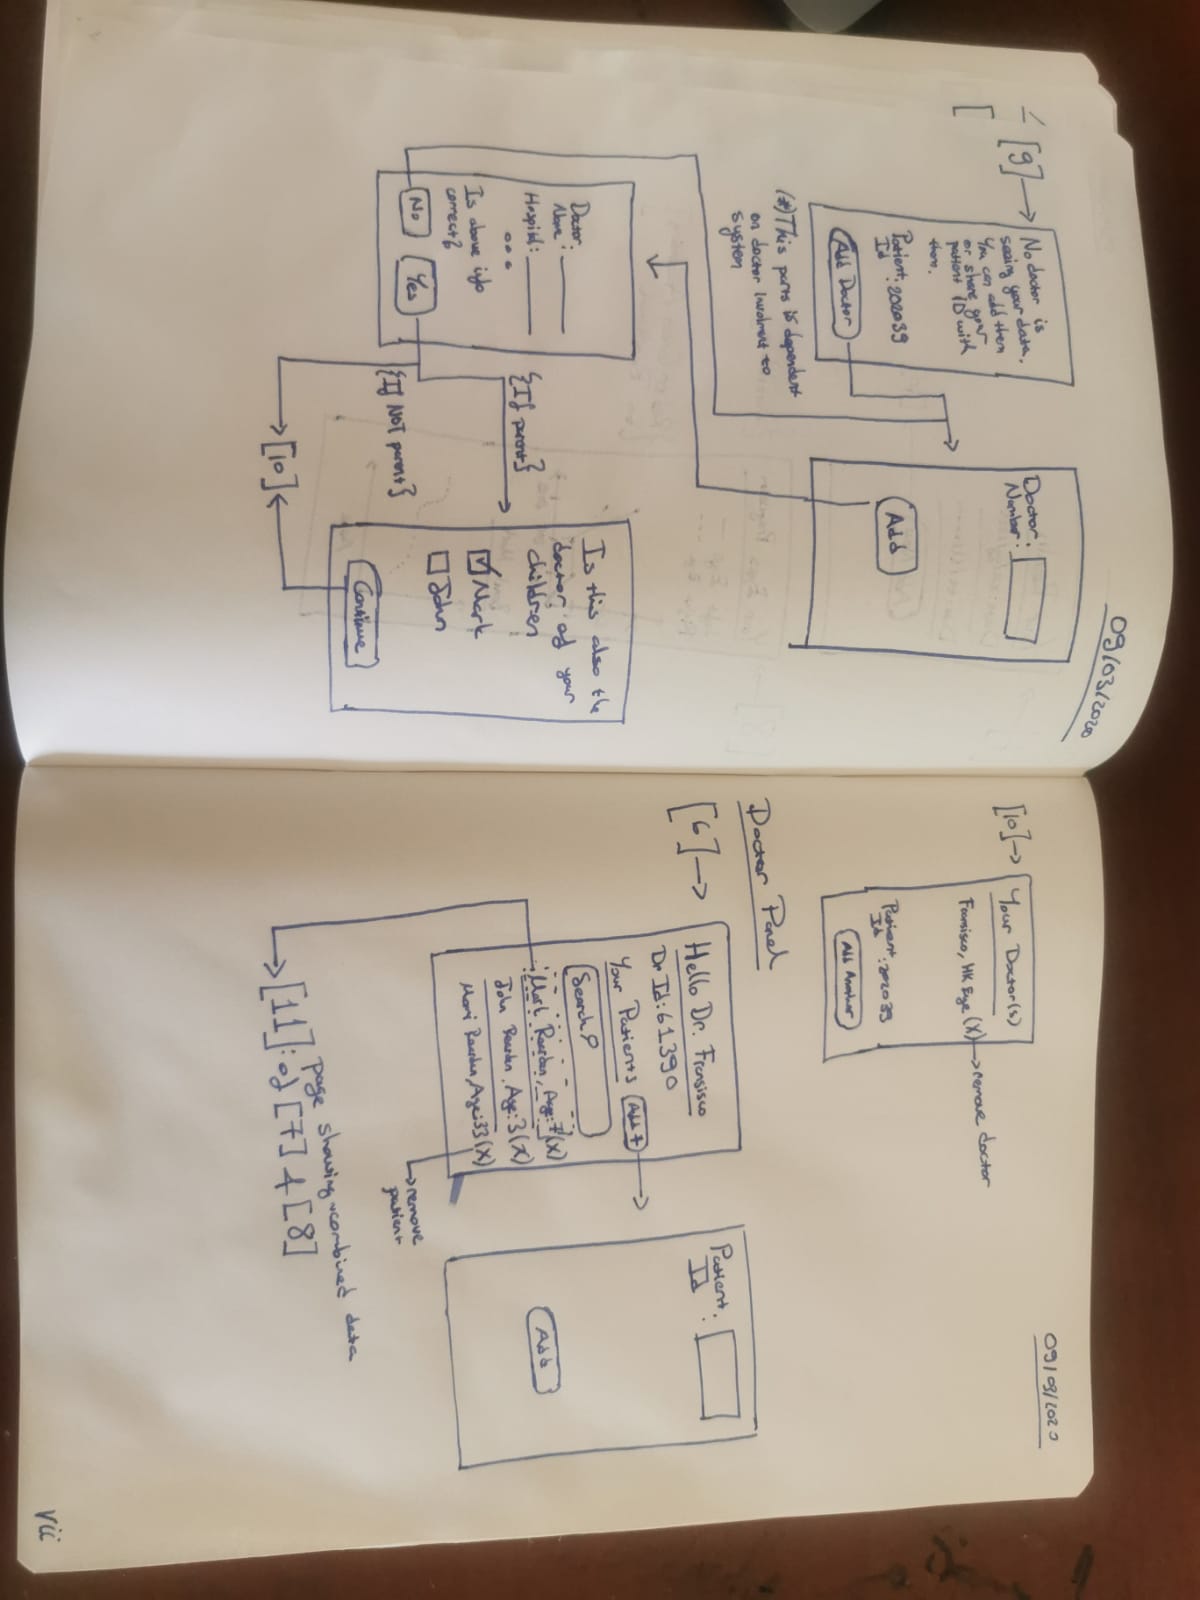 09/03/2020
[9]→
No doctor is
seeing your data.
You can add them
or share your
patient ID with
them.
Patient : 202039
Id
Add Doctor
Doctor :
Number :
Add
(*)This part is dependent
on doctor involment to
system
Doctor :
Name
Hospital :
Is above info
correct?
No
Yes
{If parent}
{If NOT parent}
[10]
Is this also the
doctor of your
children
Mark
John
Continue
09/03/2020
[10]→
Your Doctor(s)
Fransisco, HK Eye (X)→remove doctor
Patient : 202039
Id
Add Another
Doctor Panel
[6]→
Hello Dr. Fransisco
Dr Id: 61390
Your Patients
Add +
Search
Mark Rearden, Age: 7 (X)
John Rearden, Age: 3 (X)
Rearden, Age: 33 (X)
→remove
patient
Patient :
Id
Add
→[11]: page showing combined data
of [7] + [8]
vii